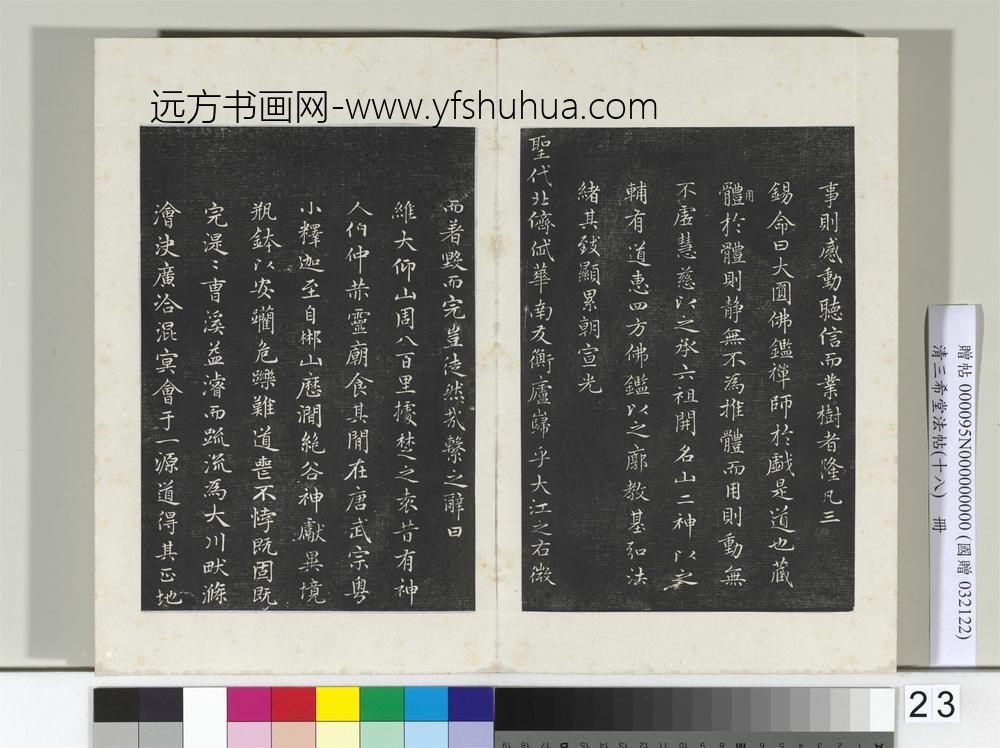 远方书画网-www.yfshuhua.com
事則感動聽信而業樹者隆凡三
錫命曰大圓佛鑑禪師於戲是道也藏
用
體於體則靜無不為推體而用則動無
不虛慧慈以之承六祖開名山二神以之
輔有道惠四方佛鑑以之廓教基弘法
緒其致顯累朝宣光
聖代北儕岱華南友衡廬巋乎大江之右徵
而著毀而完豈徒然哉繫之辭曰
維大仰山周八百里據楚之來昔有神
人伯仲赤靈廟食其間在唐武宗粵
小釋迦至自郴山歷澗絕谷神獻異境
瓶鉢以安躪危躒難道喪不悖既固既
完湜〻曹溪益濬而疏流為大川畎滌
澮浹廣洽混寘會于一源道得其正地
贈帖 000095N000000000 (國贈 032122)
清三希堂法帖(十八) 冊
23